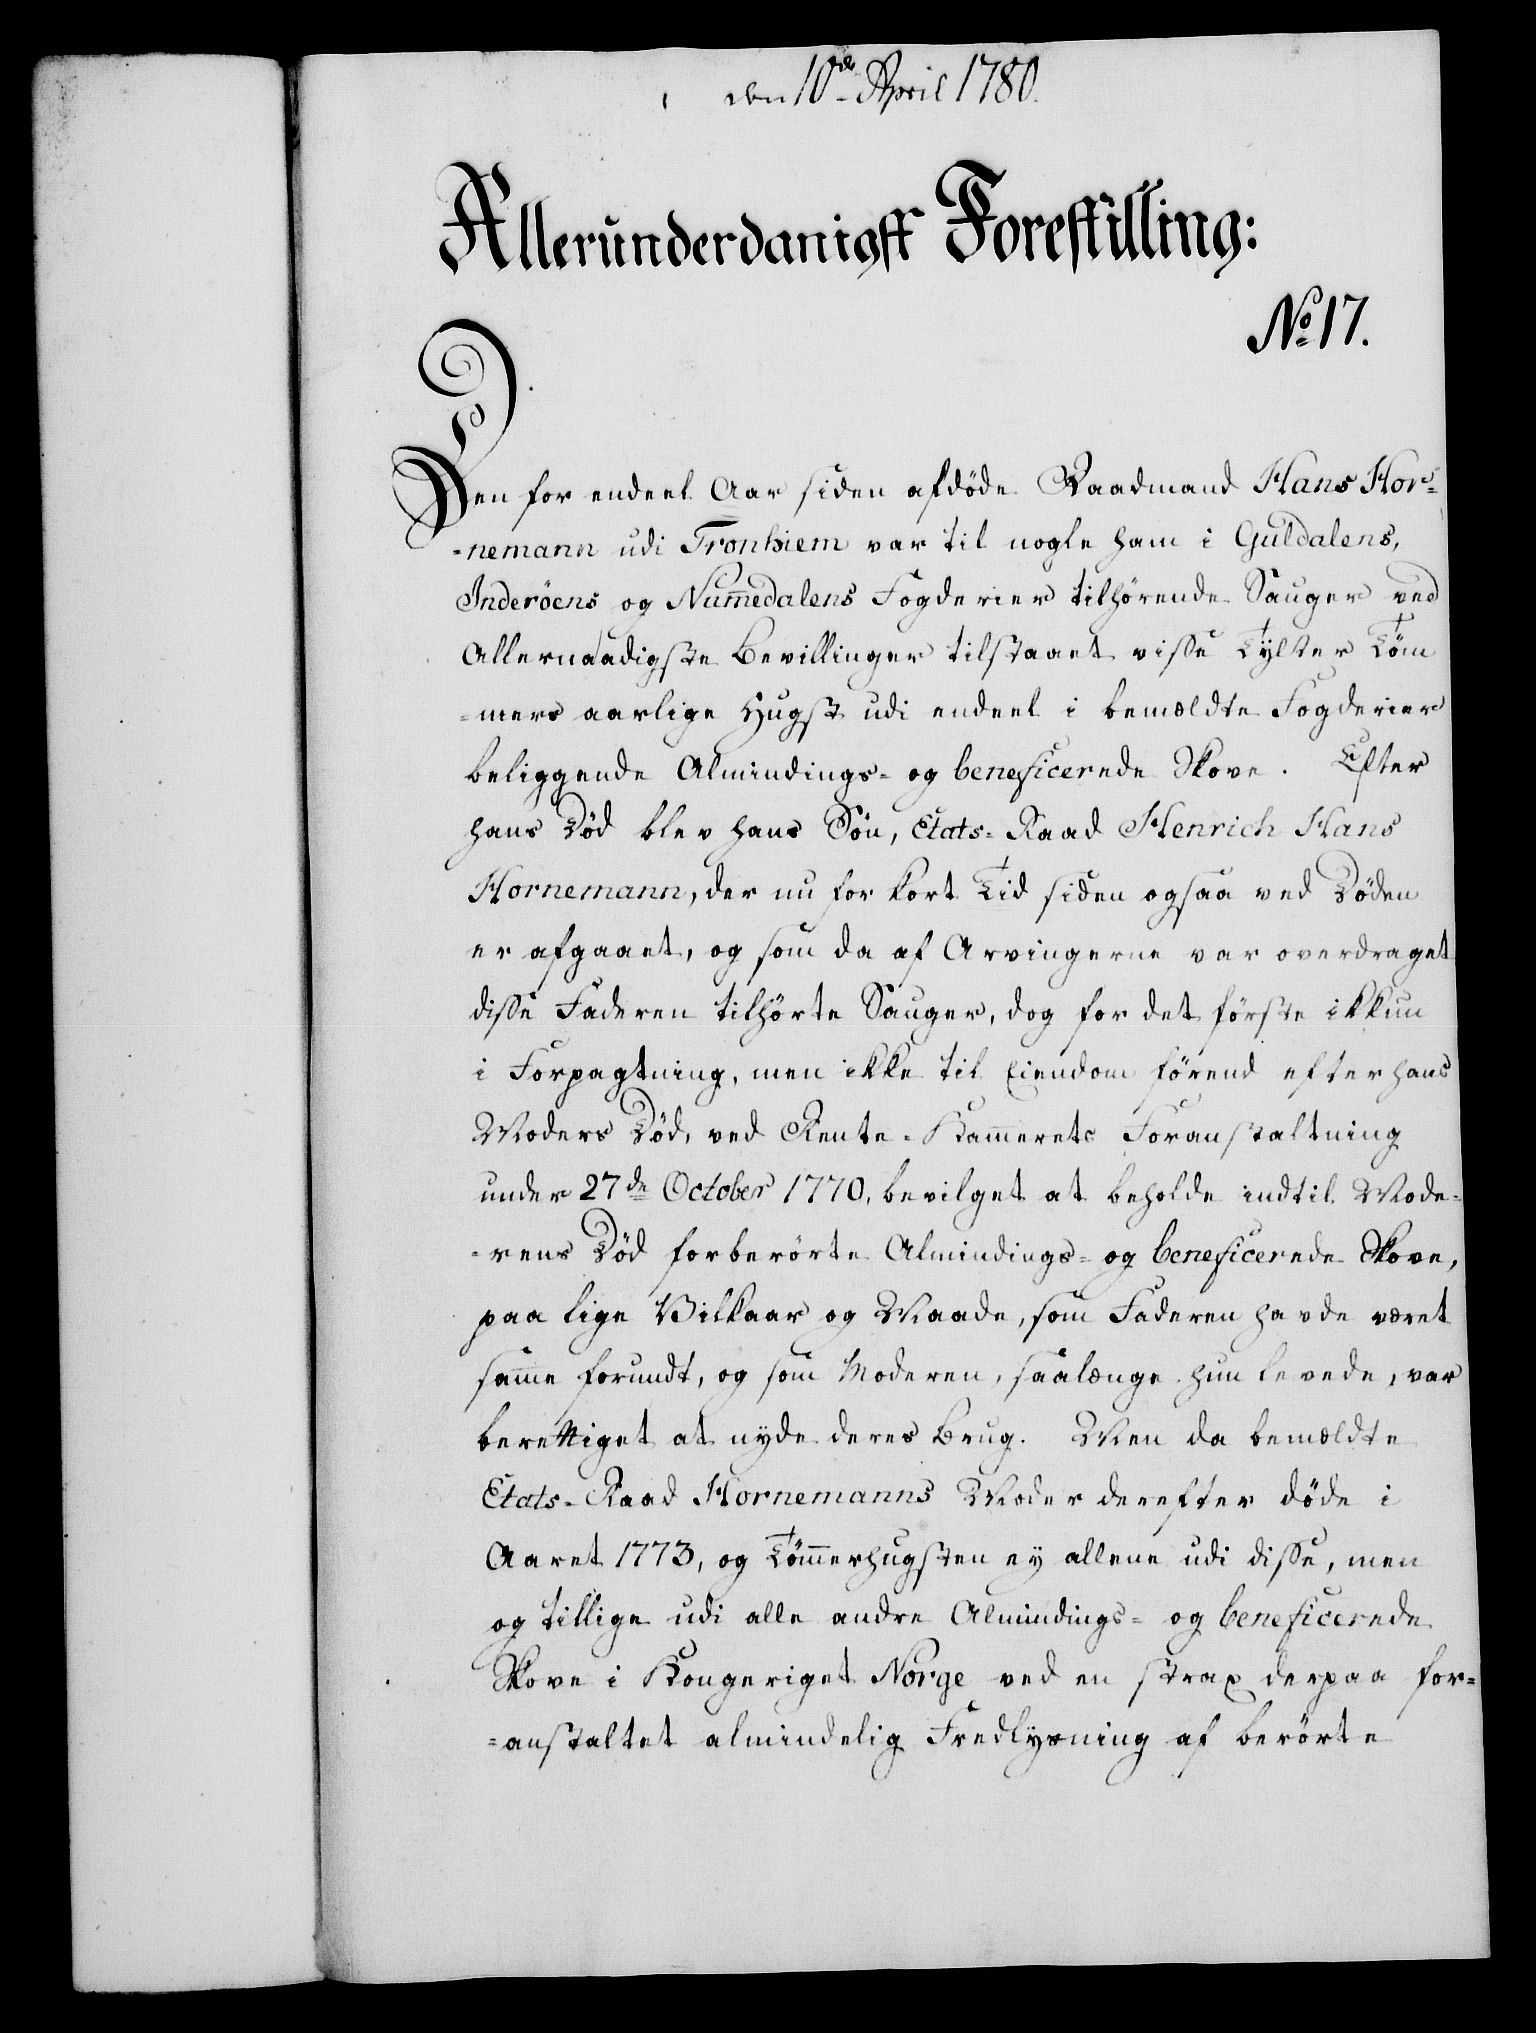 den 10de April 1780.
Allerunderdanigst Forestilling:
No 17.
Den for endeel Aar siden afdøde Raadmand Hans Hor=
=nemann udi Tronhiem var til nogle ham i Guldalens,
Inderöens og Num̅edalens Fogderier tilhørende Sauger ved
Allernaadigste Bevillinger tilstaaet visse Tylter Töm
=mers aarlige Hugst udi endeel i bemældte Fogderier
beliggende Almindings= og beneficerede Skove. Efter
hans Död blev hans Sön, Etats=Raad Henrich Hans
Hornemann, der nu for kort Tid siden ogsaa ved Döden
er afgaaet, og som da af Arvingerne var overdraget
disse Faderen tilhørte Sauger, dog for det første ikkun
i Forpagtning, men ikke til Eiendom förend efter hans
Moders Död, ved Rente=Kam̅erets Foranstaltning
under 27de October 1770, bevilget at beholde indtil Mode=
=rens Död forberörte Almindings= og beneficerede Skove,
paa lige Vilkaar og Maade, som Faderen havde været
sam̅e forundt, og som Moderen, saalænge hun levede, var
berettiget at nyde deres Brug. Men da bemældte
Etats=Raad Hornemanns Moder derefter döde i
Aaret 1773, og Töm̅erhugsten ey allene udi disse, men
og tillige udi alle andre Almindings= og beneficerede
Skove i Kongeriget Norge ved en strax derpaa for=
=anstaltet almindelig Fredlysning af berörte